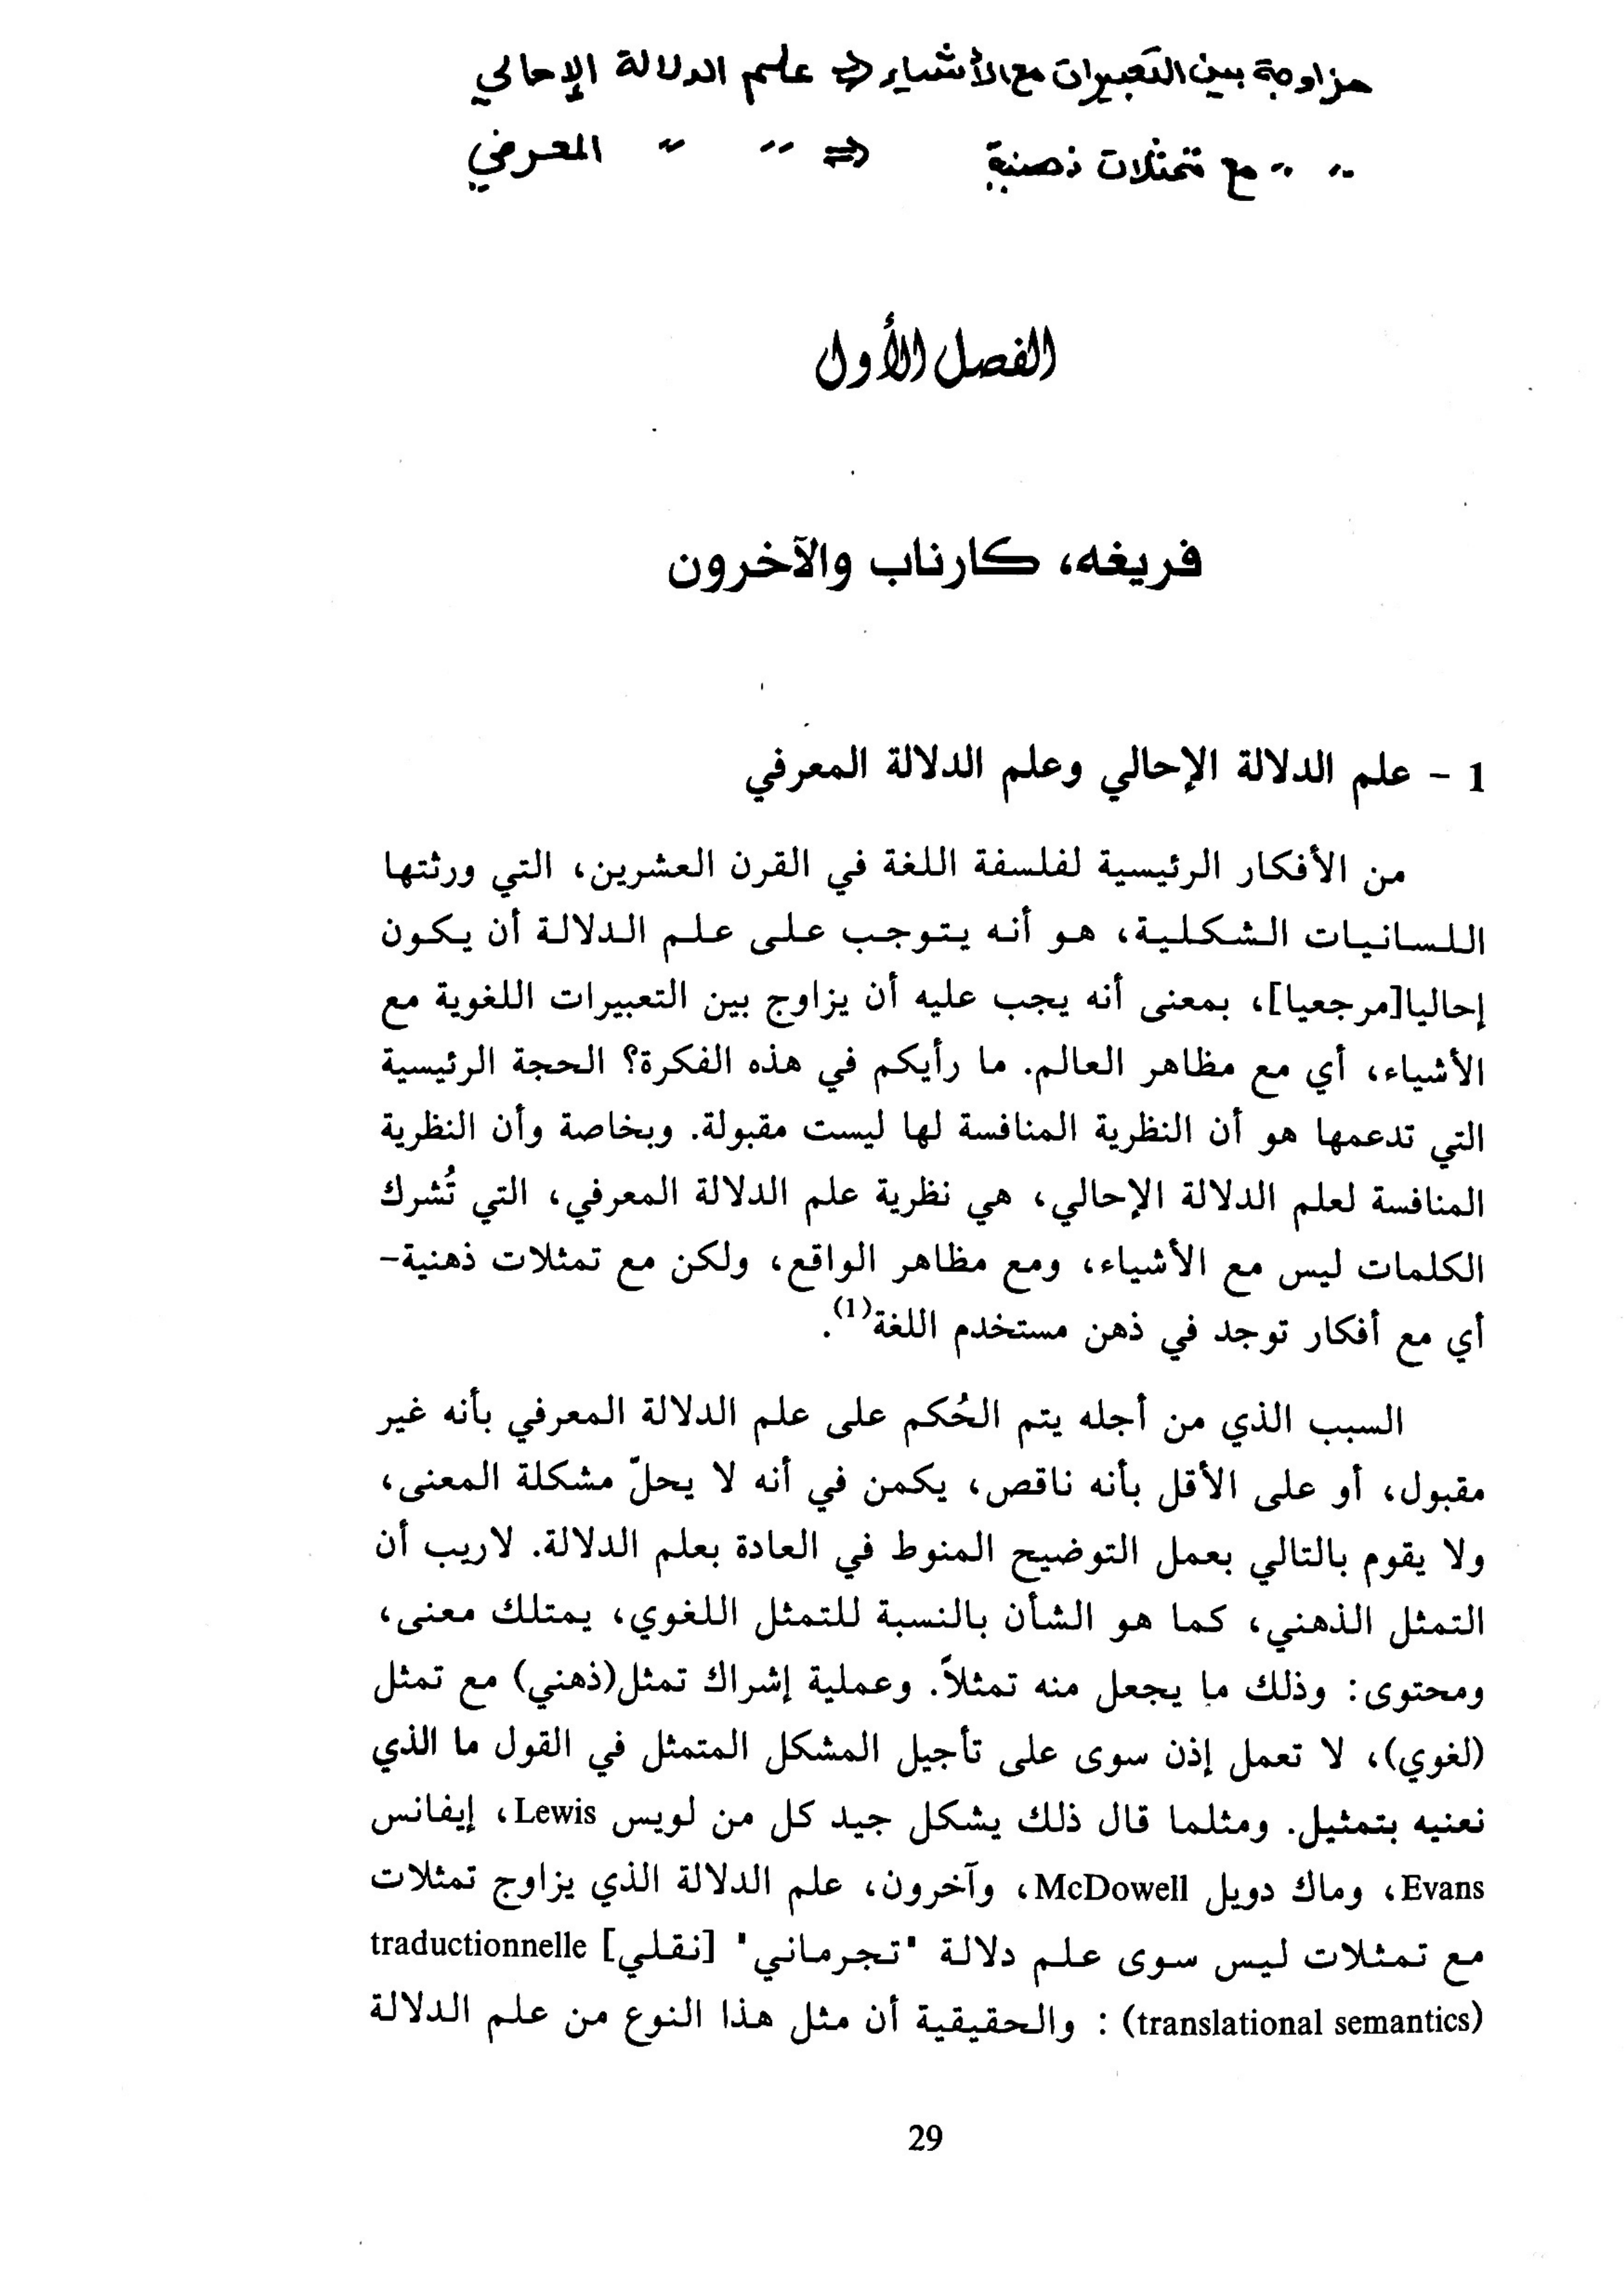 مزاوجة بين التعبيرات مع الأشياء ⇐ علم الدلالة الإحالي
〃 〃 مع تمثلات ذهنية ⇐ 〃 〃 المعرفي
الفصل الأول
فريغه، كارناب والآخرون
1 - علم الدلالة الإحالي وعلم الدلالة المعرفي
من الأفكار الرئيسية لفلسفة اللغة في القرن العشرين، التي ورثتها
اللسانيات الشكلية، هو أنه يتوجب على علم الدلالة أن يكون
إحاليا[مرجعيا]، بمعنى أنه يجب عليه أن يزاوج بين التعبيرات اللغوية مع
الأشياء، أي مع مظاهر العالم. ما رأيكم في هذه الفكرة؟ الحجة الرئيسية
التي تدعمها هو أن النظرية المنافسة لها ليست مقبولة. وبخاصة وأن النظرية
المنافسة لعلم الدلالة الإحالي، هي نظرية علم الدلالة المعرفي، التي تُشرك
الكلمات ليس مع الأشياء، ومع مظاهر الواقع، ولكن مع تمثلات ذهنية-
أي مع أفكار توجد في ذهن مستخدم اللغة(1).
السبب الذي من أجله يتم الحُكم على علم الدلالة المعرفي بأنه غير
مقبول، أو على الأقل بأنه ناقص، يكمن في أنه لا يحلّ مشكلة المعنى،
ولا يقوم بالتالي بعمل التوضيح المنوط في العادة بعلم الدلالة. لاريب أن
التمثل الذهني، كما هو الشأن بالنسبة للتمثل اللغوي، يمتلك معنى،
ومحتوى: وذلك ما يجعل منه تمثلاً. وعملية إشراك تمثل(ذهني) مع تمثل
(لغوي)، لا تعمل إذن سوى على تأجيل المشكل المتمثل في القول ما الذي
نعنيه بتمثيل. ومثلما قال ذلك يشكل جيد كل من لويس Lewis، إيفانس
Evans، وماك دويل McDowell، وآخرون، علم الدلالة الذي يزاوج تمثلات
مع تمثلات ليس سوى علم دلالة "تجرماني" [نقلي] traductionnelle
(translational semantics) : والحقيقية أن مثل هذا النوع من علم الدلالة
29